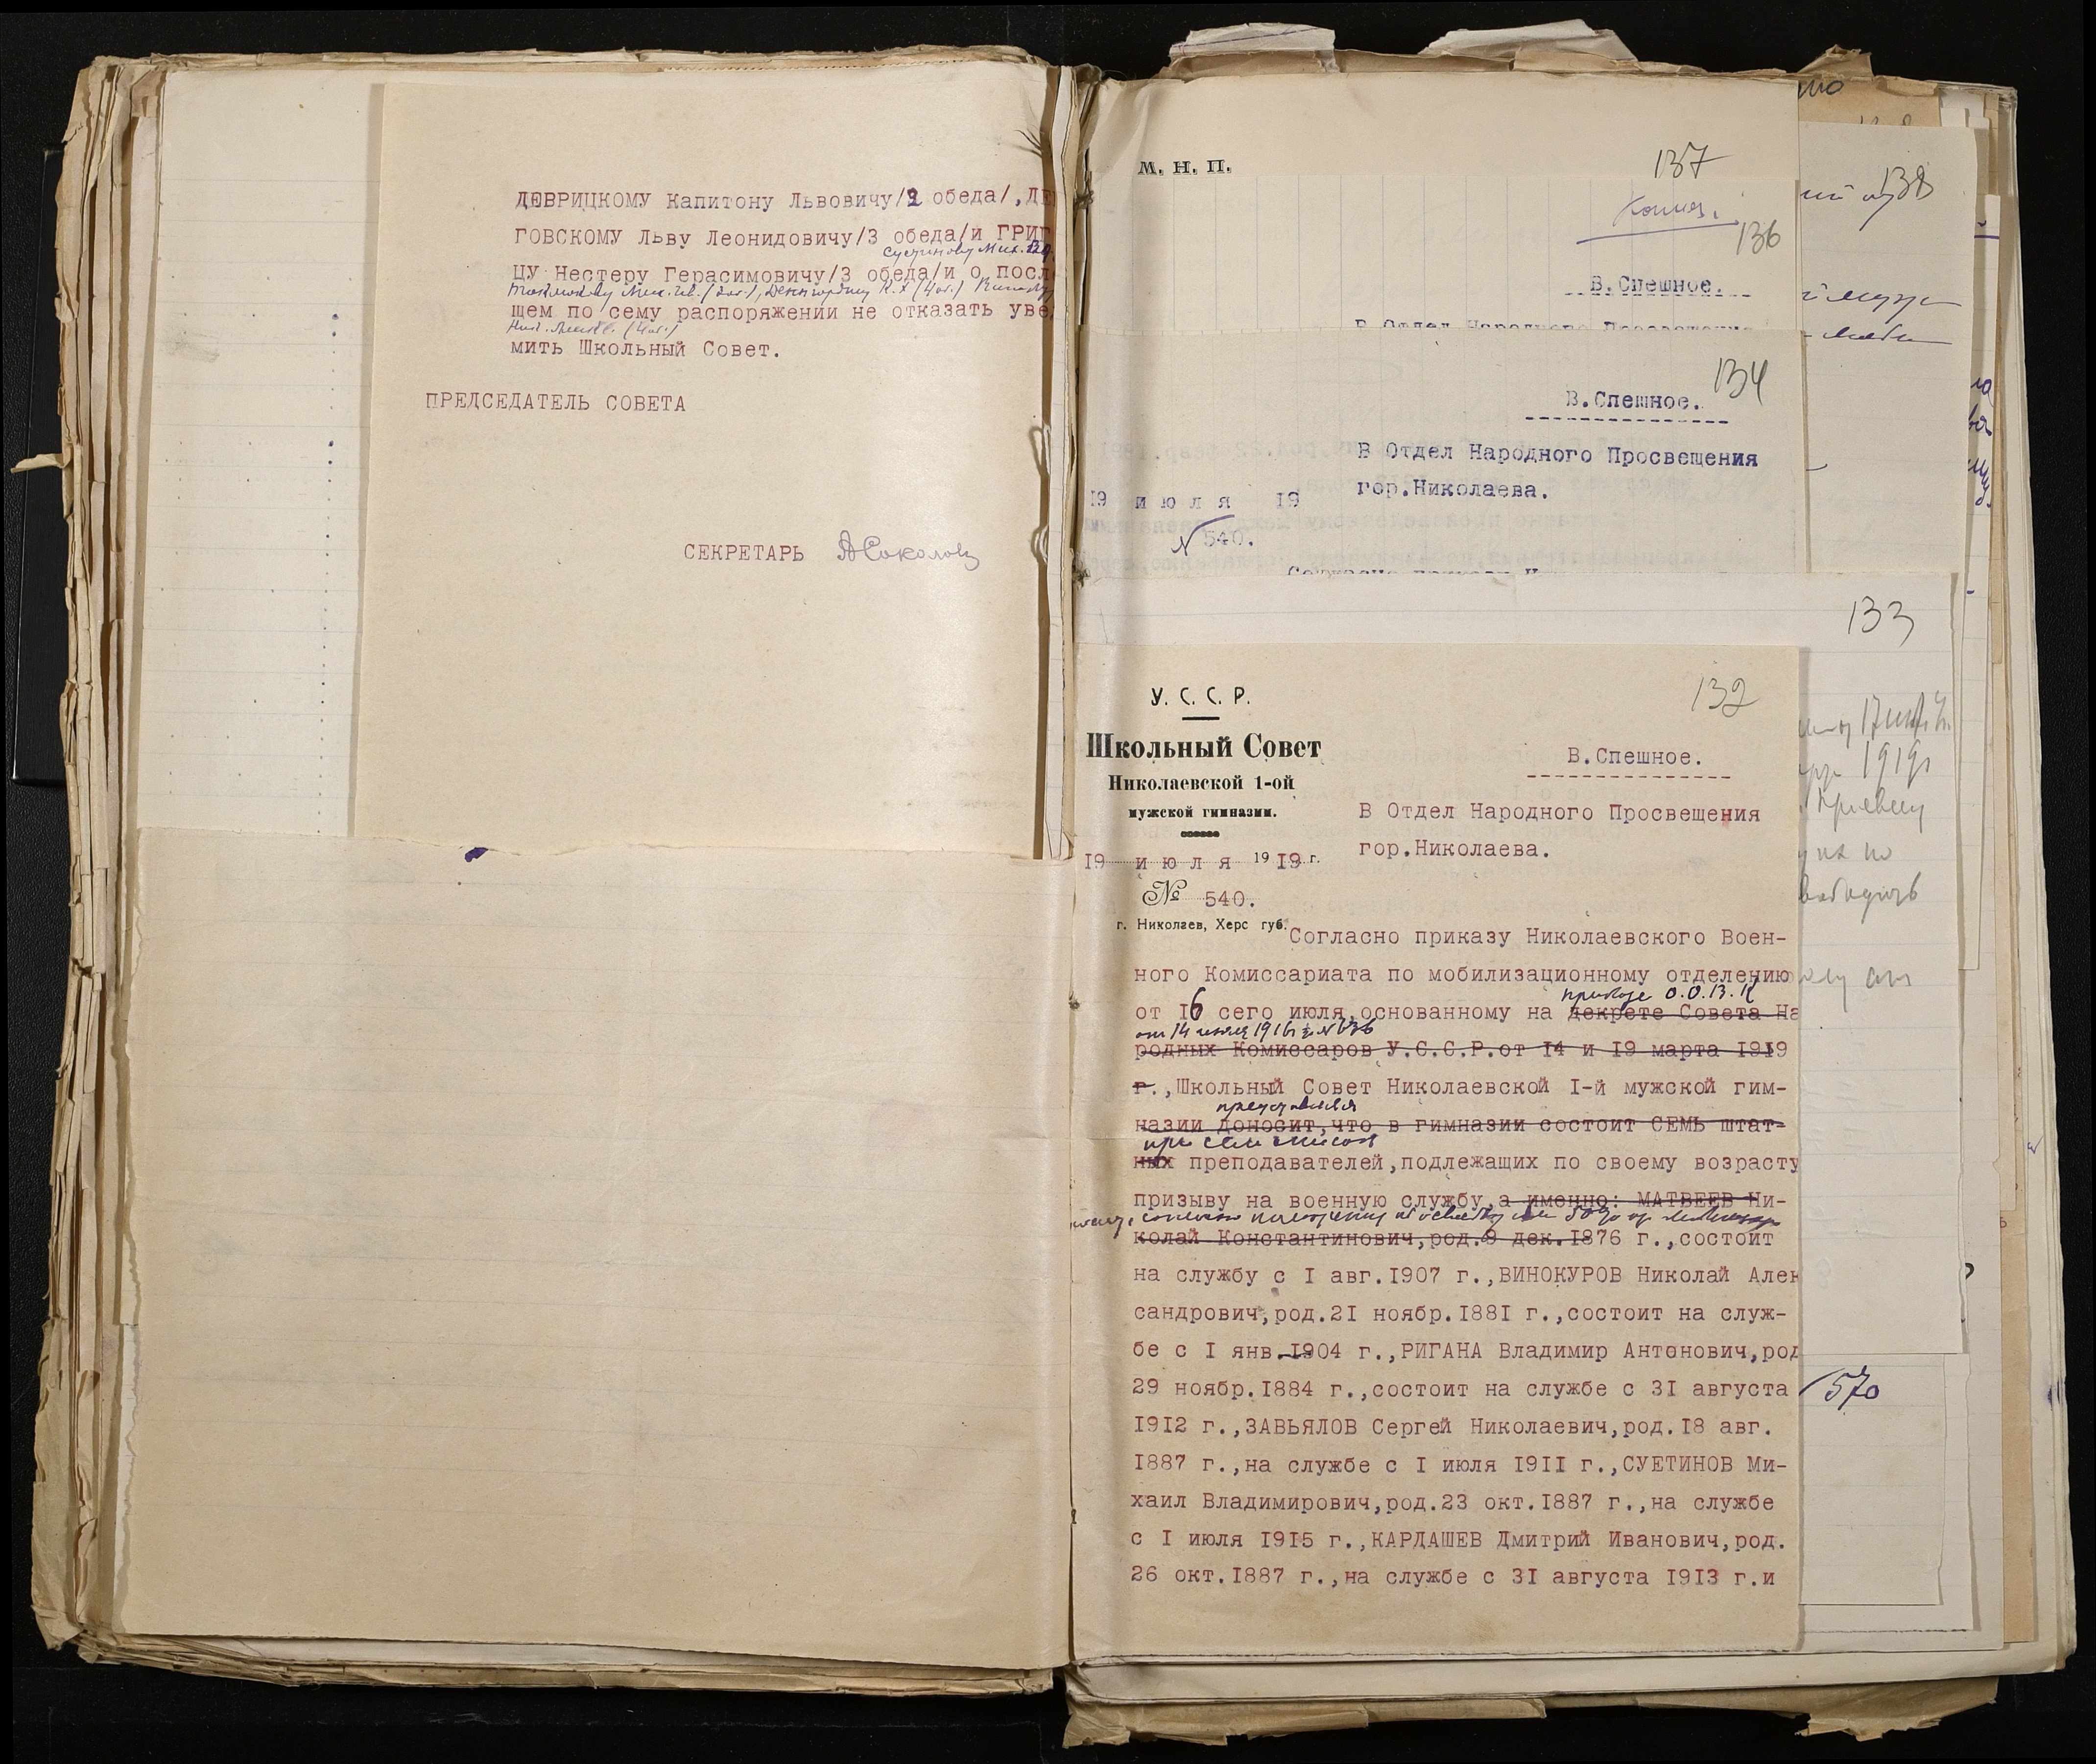 ДЕВРИЦКОМУ Капитону Львовичу/2 обеда/, ДЕ
ГОВСКОМУ Льву Леонидовичу/3 обеда/и ГРИГ
Суетинову Мих. Вл.
ЦУ Нестеру Герасимовичу/3 обеда/и о посл
щем по сему распоряжении не отказать уве
(4 об.)
мить Школьный Совет.
ПРЕДСЕДАТЕЛЬ СОВЕТА
СЕКРЕТАРЬ АСоколов
М. Н. П.
137
138
Копия.
136
В.Спешное.
В Отдел Народного Просвещения
134
В.Спешное.
В Отдел Народного Просвещения
гор.Николаева.
19 июля 19
№ 540.
133
132
У. С. С. Р.
Школьный Совет
Николаевской 1-ой
мужской гимназии.
В.Спешное.
В Отдел Народного Просвещения
гор.Николаева.
19 июля 1919 г.
№ 540.
г. Николаев, Херс губ.
Согласно приказу Николаевского Воен-
ного Комиссариата по мобилизационному отделению
приказе О.О.В.К
от 16 сего июля,основанному на декрете Совета На
от 14 июля 1919 г. № 636
родных Комиссаров У.С.С.Р.от 14 и 19 марта 1919
г.,Школьный Совет Николаевской I-й мужской гим-
представляя
назии доносит,что в гимназии состоит СЕМЬ штат-
при сем список
ных преподавателей,подлежащих по своему возрасту
призыву на военную службу,а именно: МАТВЕЕВ Ни-
колай Константинович,род.9 дек.1876 г.,состоит
на службу с I авг.1907 г.,ВИНОКУРОВ Николай Алек
сандрович,род.21 ноябр.1881 г.,состоит на служ-
бе с I янв.1904 г.,РИГАНА Владимир Антонович,род
29 ноябр.1884 г.,состоит на службе с 31 августа
1912 г.,ЗАВЬЯЛОВ Сергей Николаевич,род.18 авг.
1887 г.,на службе с I июля 1911 г.,СУЕТИНОВ Ми-
хаил Владимирович,род.23 окт.1887 г.,на службе
с I июля 1915 г.,КАРДАШЕВ Дмитрий Иванович,род.
26 окт.1887 г.,на службе с 31 августа 1913 г.и
1919
570